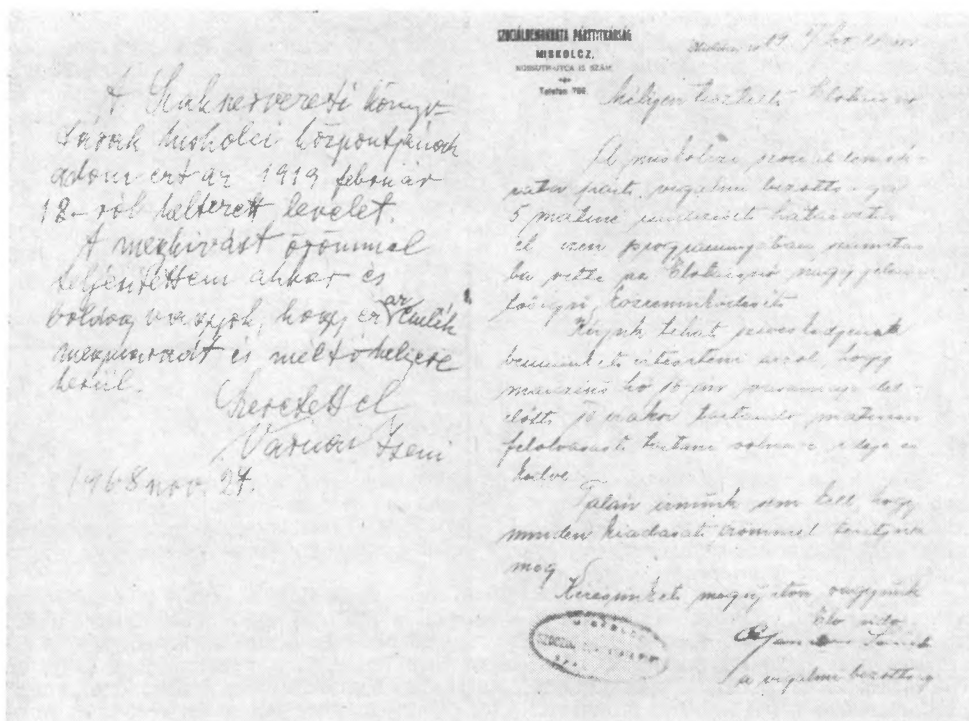 A Szakszervezeti könyv-
tárak miskolci központjának
adom ezt az 1919 február
18-ról keltezett levelet.
A meghivást örömmel
teljesítettem akkor és
boldog vagyok, hogy ez az emlék
megmaradt és méltó helyére
kerül.
Szeretettel
Várnai Zseni
1968 nov. 27.
SZOCIÁLDEMOKRATA PÁRTTITKÁRSÁG
MISKOLCZ,
KOSSUTH-UTCA 15 SZÁM
Telefon 786
Mélyen tisztelt Elvtársnő
A miskolczi szociáldemok-
rata párt vigalmi bizottsága
5 matiné rendezését határozta
el ezen programmjában számitás-
ba vette az Elvtársnő nagy jelen-
tőségű közreműködését
Kérjük tehát sziveskedjenek
bennünket értesiteni arról, hogy
márczius hó 16 án vasárnap dél-
előtt 10 órakor tartandó matinén
felolvasást tartani volna e ideje és
kedve
Talán irnunk sem kell, hogy
minden kiadását örömmel térítjük
meg
Kérésünket megújitva vagyunk
Elv üdv
a vigalmi bizottság
MISKOLCZ